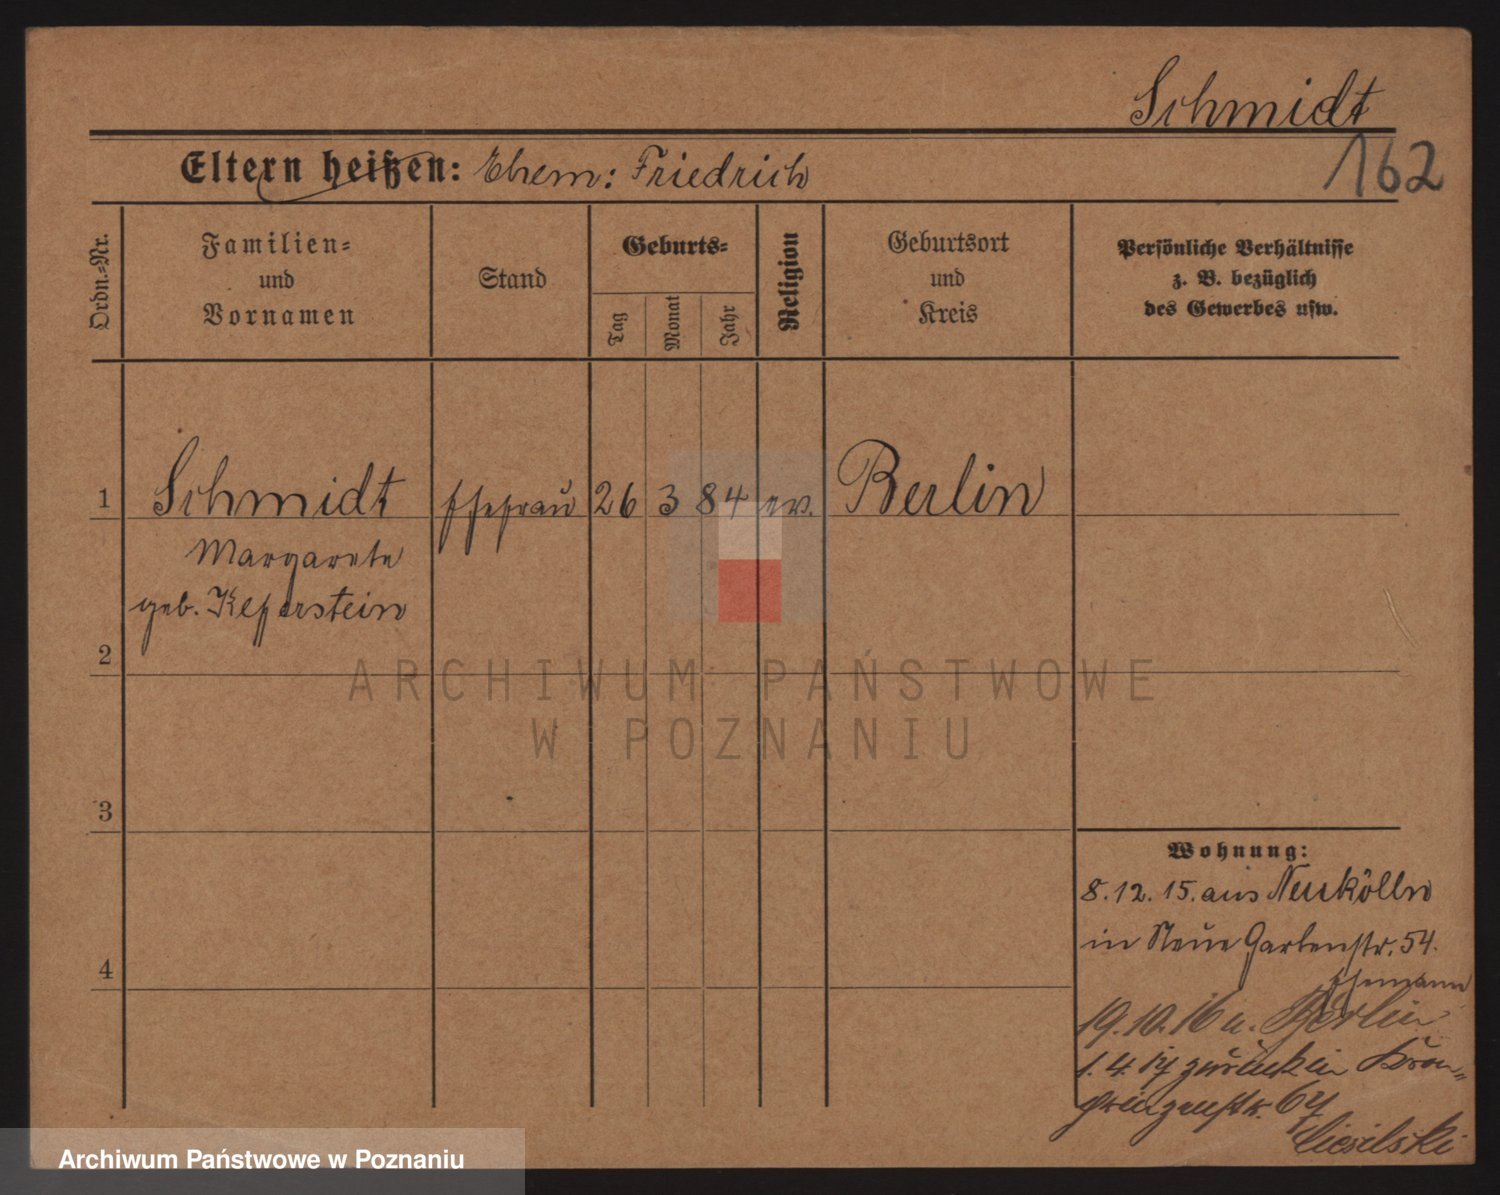 Schmidt
162
Eltern heißen: Ehem: Friedrich
Ordn.=Nr.
Familien=
und
Vornamen
Stand
Geburts=
Tag
Monat
Jahr
Religion
Geburtsort
und
Kreis
Persönliche Verhältnisse
z. B. bezüglich
des Gewerbes usw.
1 Schmidt Ehefrau 26 3 84 ev. Berlin
Margarete
geb. Keferstein
2
ARCHIWUM PAŃSTWOWE
W POZNANIU
3
Wohnung:
8.12.15. aus Neukölln
in Neue Gartenstr. 54.
4
Ehemann
19.10.16 n. Berlin
1.4.17 zurück in Kron-
prinzenstr. 64
Archiwum Państwowe w Poznaniu